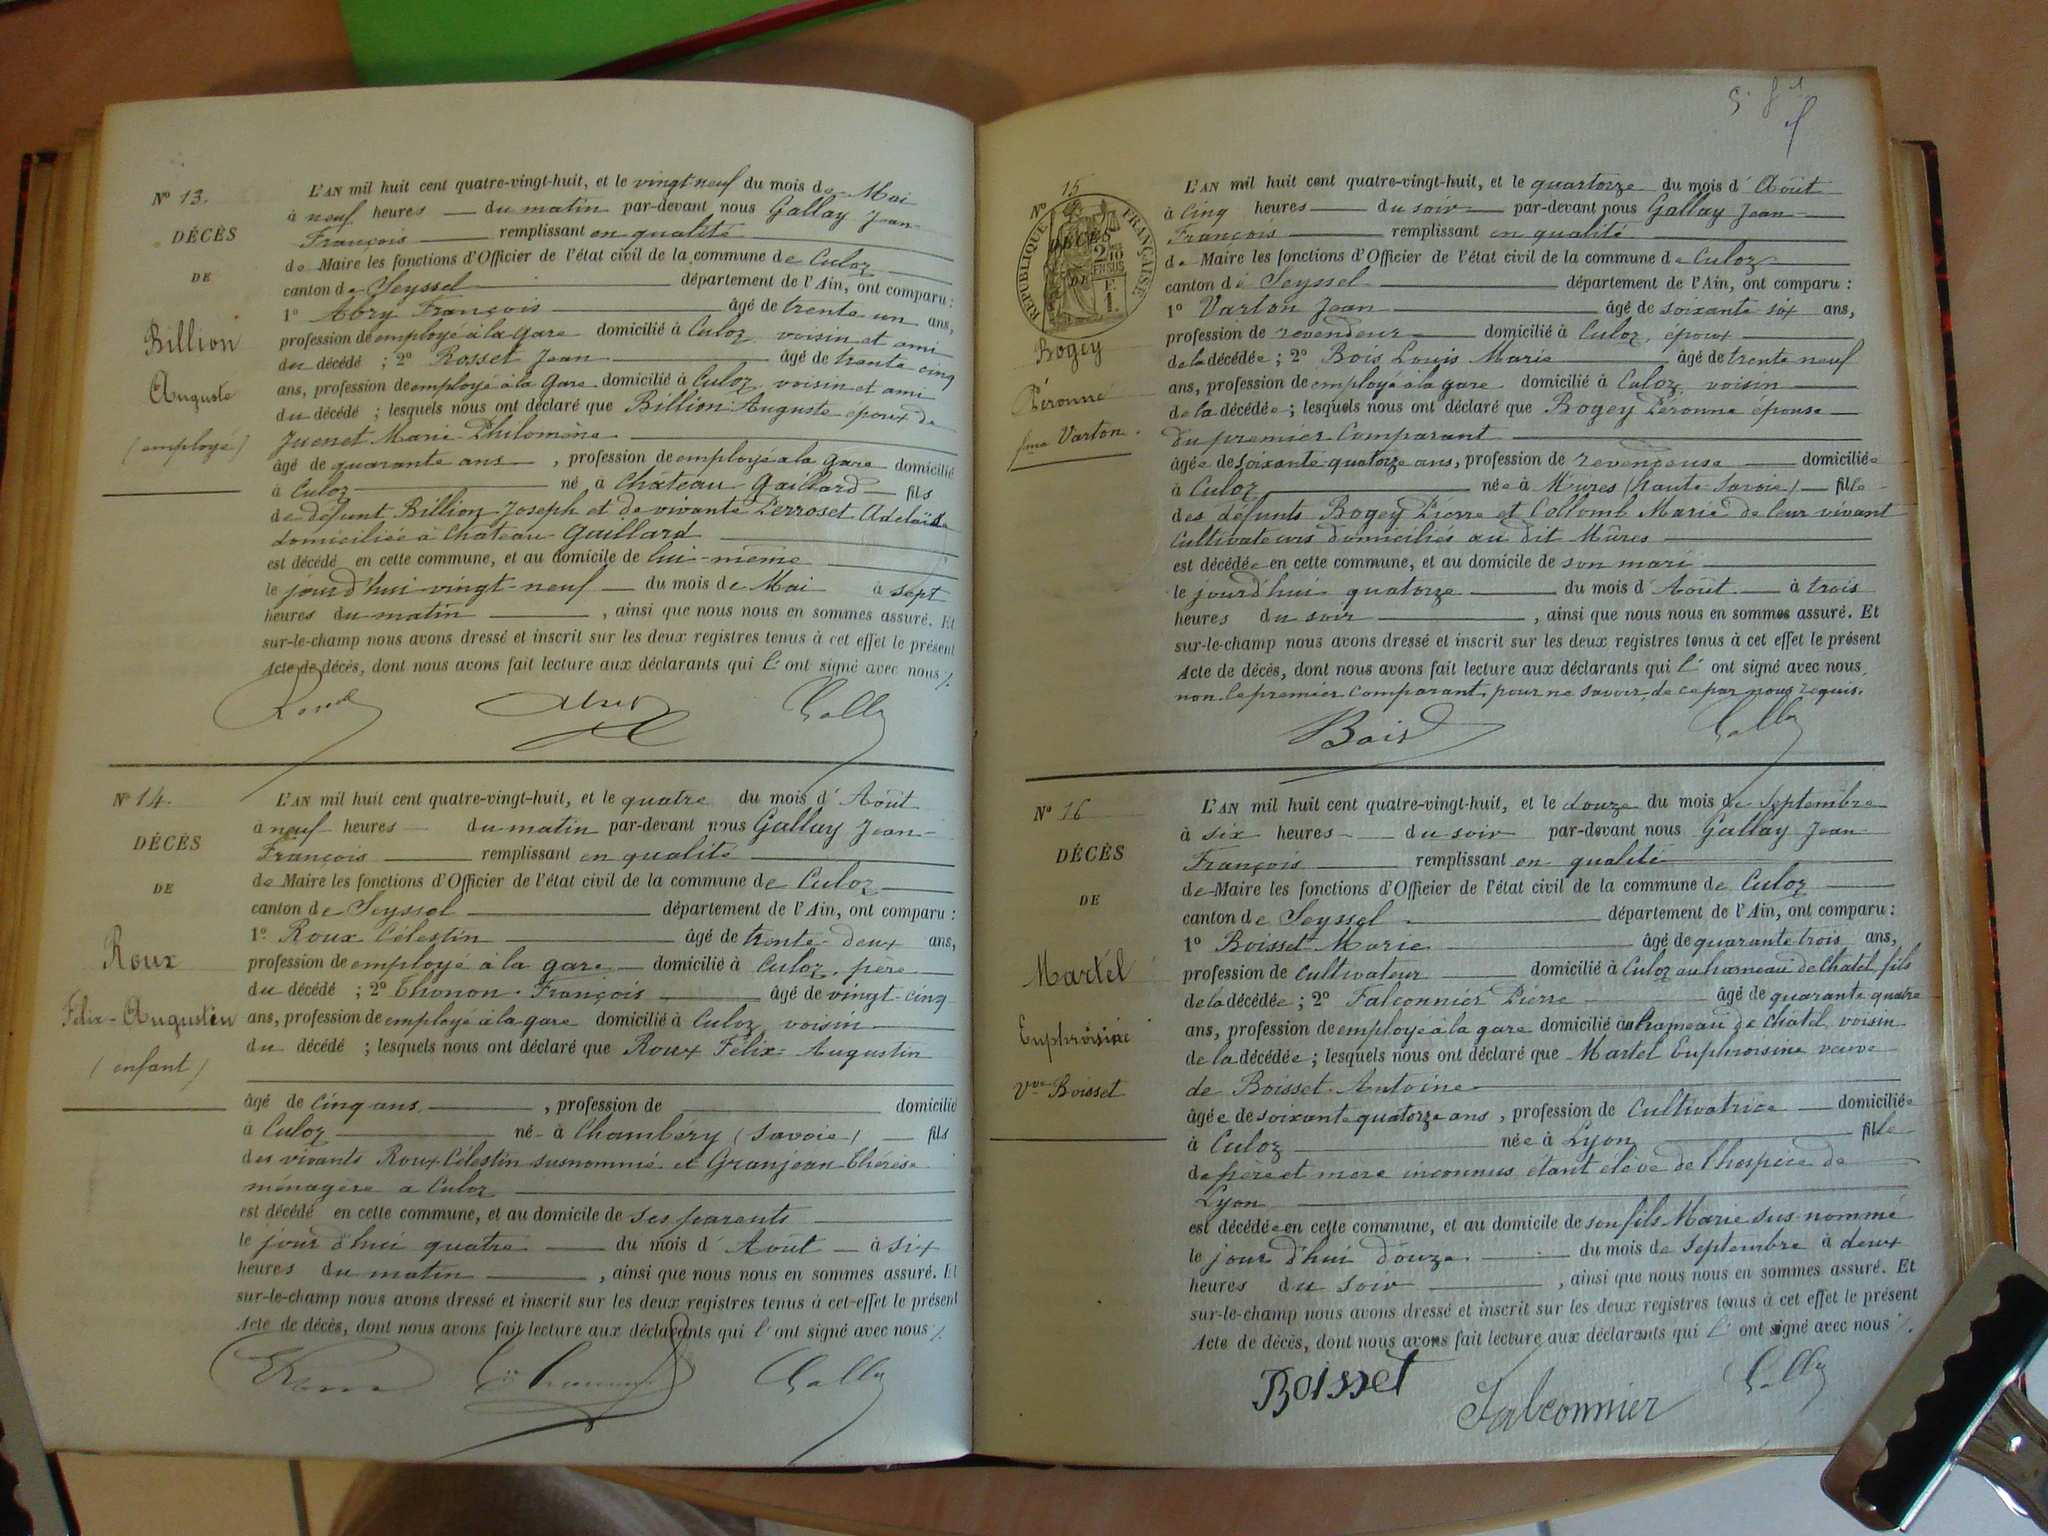 N° 13.
DÉCÈS
DE
Billion
Auguste
(employé)
L'AN mil huit cent quatre-vingt-huit, et le vingt neuf du mois de Mai
à neuf heures du matin par-devant nous Gallay Jean-
François remplissant en qualité
de Maire les fonctions d'Officier de l'état civil de la commune de Culoz
canton de Seyssel département de l'Ain, ont comparu :
1° Abry François âgé de trente un ans,
profession de employé à la gare domicilié à Culoz, voisin et ami
du décédé ; 2° Rosset Jean âgé de trente cinq
ans, profession de employé à la gare domicilié à Culoz, voisin et ami
du décédé ; lesquels nous ont déclaré que Billion Auguste époux de
Juenet Marie Philomène
âgé de quarante ans, profession de employé à la gare domicilié
à Culoz né à Château Gaillard fils
de défunt Billion Joseph et de vivante Perroset Adelaïde
domiciliée à Château Gaillard
est décédé en cette commune, et au domicile de lui-même
le jourd'hui vingt-neuf du mois de Mai à sept
heures du matin, ainsi que nous nous en sommes assuré. Et
sur-le-champ nous avons dressé et inscrit sur les deux registres tenus à cet effet le présent
Acte de décès, dont nous avons fait lecture aux déclarants qui l'ont signé avec nous
Gallay
N° 14.
DÉCÈS
DE
Roux
Félix-Augustin
(enfant)
L'AN mil huit cent quatre-vingt-huit, et le quatre du mois d'Août
à neuf heures du matin par-devant nous Gallay Jean-
François remplissant en qualité
de Maire les fonctions d'Officier de l'état civil de la commune de Culoz
canton de Seyssel département de l'Ain, ont comparu :
1° Roux Célestin âgé de trente-deux ans,
profession de employé à la gare domicilié à Culoz, père
du décédé ; 2° Thonon François âgé de vingt-cinq
ans, profession de employé à la gare domicilié à Culoz, voisin
du décédé ; lesquels nous ont déclaré que Roux Félix-Augustin
âgé de cinq ans, profession de domicilié
à Culoz né à Chambéry (Savoie) fils
des vivants Roux Célestin susnommé et Granjean Thérèse
ménagère à Culoz
est décédé en cette commune, et au domicile de ses parents
le jour d'hui quatre du mois d'Août à six
heures du matin, ainsi que nous nous en sommes assuré. Et
sur-le-champ nous avons dressé et inscrit sur les deux registres tenus à cet effet le présent
Acte de décès, dont nous avons fait lecture aux déclarants qui l'ont signé avec nous
Gallay
N° 15
DÉCÈS
DE
RÉPUBLIQUE FRANÇAISE
2/10 EN SUS
Bogey
Péronne
fme Varton.
L'AN mil huit cent quatre-vingt-huit, et le quatorze du mois d'Août
à cinq heures du soir par-devant nous Gallay Jean-
François remplissant en qualité
de Maire les fonctions d'Officier de l'état civil de la commune de Culoz
canton de Seyssel département de l'Ain, ont comparu :
1° Varton Jean âgé de soixante six ans,
profession de revendeur domicilié à Culoz, époux
de la décédée ; 2° Bois Louis Marie âgé de trente neuf
ans, profession de employé à la gare domicilié à Culoz, voisin
de la décédée ; lesquels nous ont déclaré que Bogey Péronne épouse
du premier Comparant
âgée de soixante quatorze ans, profession de revendeuse domiciliée
à Culoz née à Mûres (haute Savoie) fille
des défunts Bogey Pierre et Collomb Marie de leur vivant
Cultivateurs domiciliés au dit Mûres
est décédée en cette commune, et au domicile de son mari
le jourd'hui quatorze du mois d'Août à trois
heures du soir, ainsi que nous nous en sommes assuré. Et
sur-le-champ nous avons dressé et inscrit sur les deux registres tenus à cet effet le présent
Acte de décès, dont nous avons fait lecture aux déclarants qui l'ont signé avec nous,
non le premier comparant, pour ne savoir, de ce par nous requis.
Bois
Gallay
N° 16
DÉCÈS
DE
Martel
Euphroisine
Vve Boisset
L'AN mil huit cent quatre-vingt-huit, et le douze du mois de Septembre
à six heures du soir par-devant nous Gallay Jean
François remplissant en qualité
de Maire les fonctions d'Officier de l'état civil de la commune de Culoz
canton de Seyssel département de l'Ain, ont comparu :
1° Boisset Marie âgé de quarante trois ans,
profession de Cultivateur domicilié à Culoz au hameau de Chatel fils
de la décédée ; 2° Falconnier Pierre âgé de quarante quatre
ans, profession de employé à la gare domicilié au hameau de Chatel voisin
de la décédée ; lesquels nous ont déclaré que Martel Euphroisine veuve
de Boisset Antoine
âgée de soixante quatorze ans, profession de Cultivatrice domiciliée
à Culoz née à Lyon fille
de père et mère inconnus étant élève de l'hospice de
Lyon
est décédée en cette commune, et au domicile de son fils Marie sus nommé
le jour d'hui douze du mois de Septembre à deux
heures du soir, ainsi que nous nous en sommes assuré. Et
sur-le-champ nous avons dressé et inscrit sur les deux registres tenus à cet effet le présent
Acte de décès, dont nous avons fait lecture aux déclarants qui l'ont signé avec nous
Boisset
Falconnier
Gallay